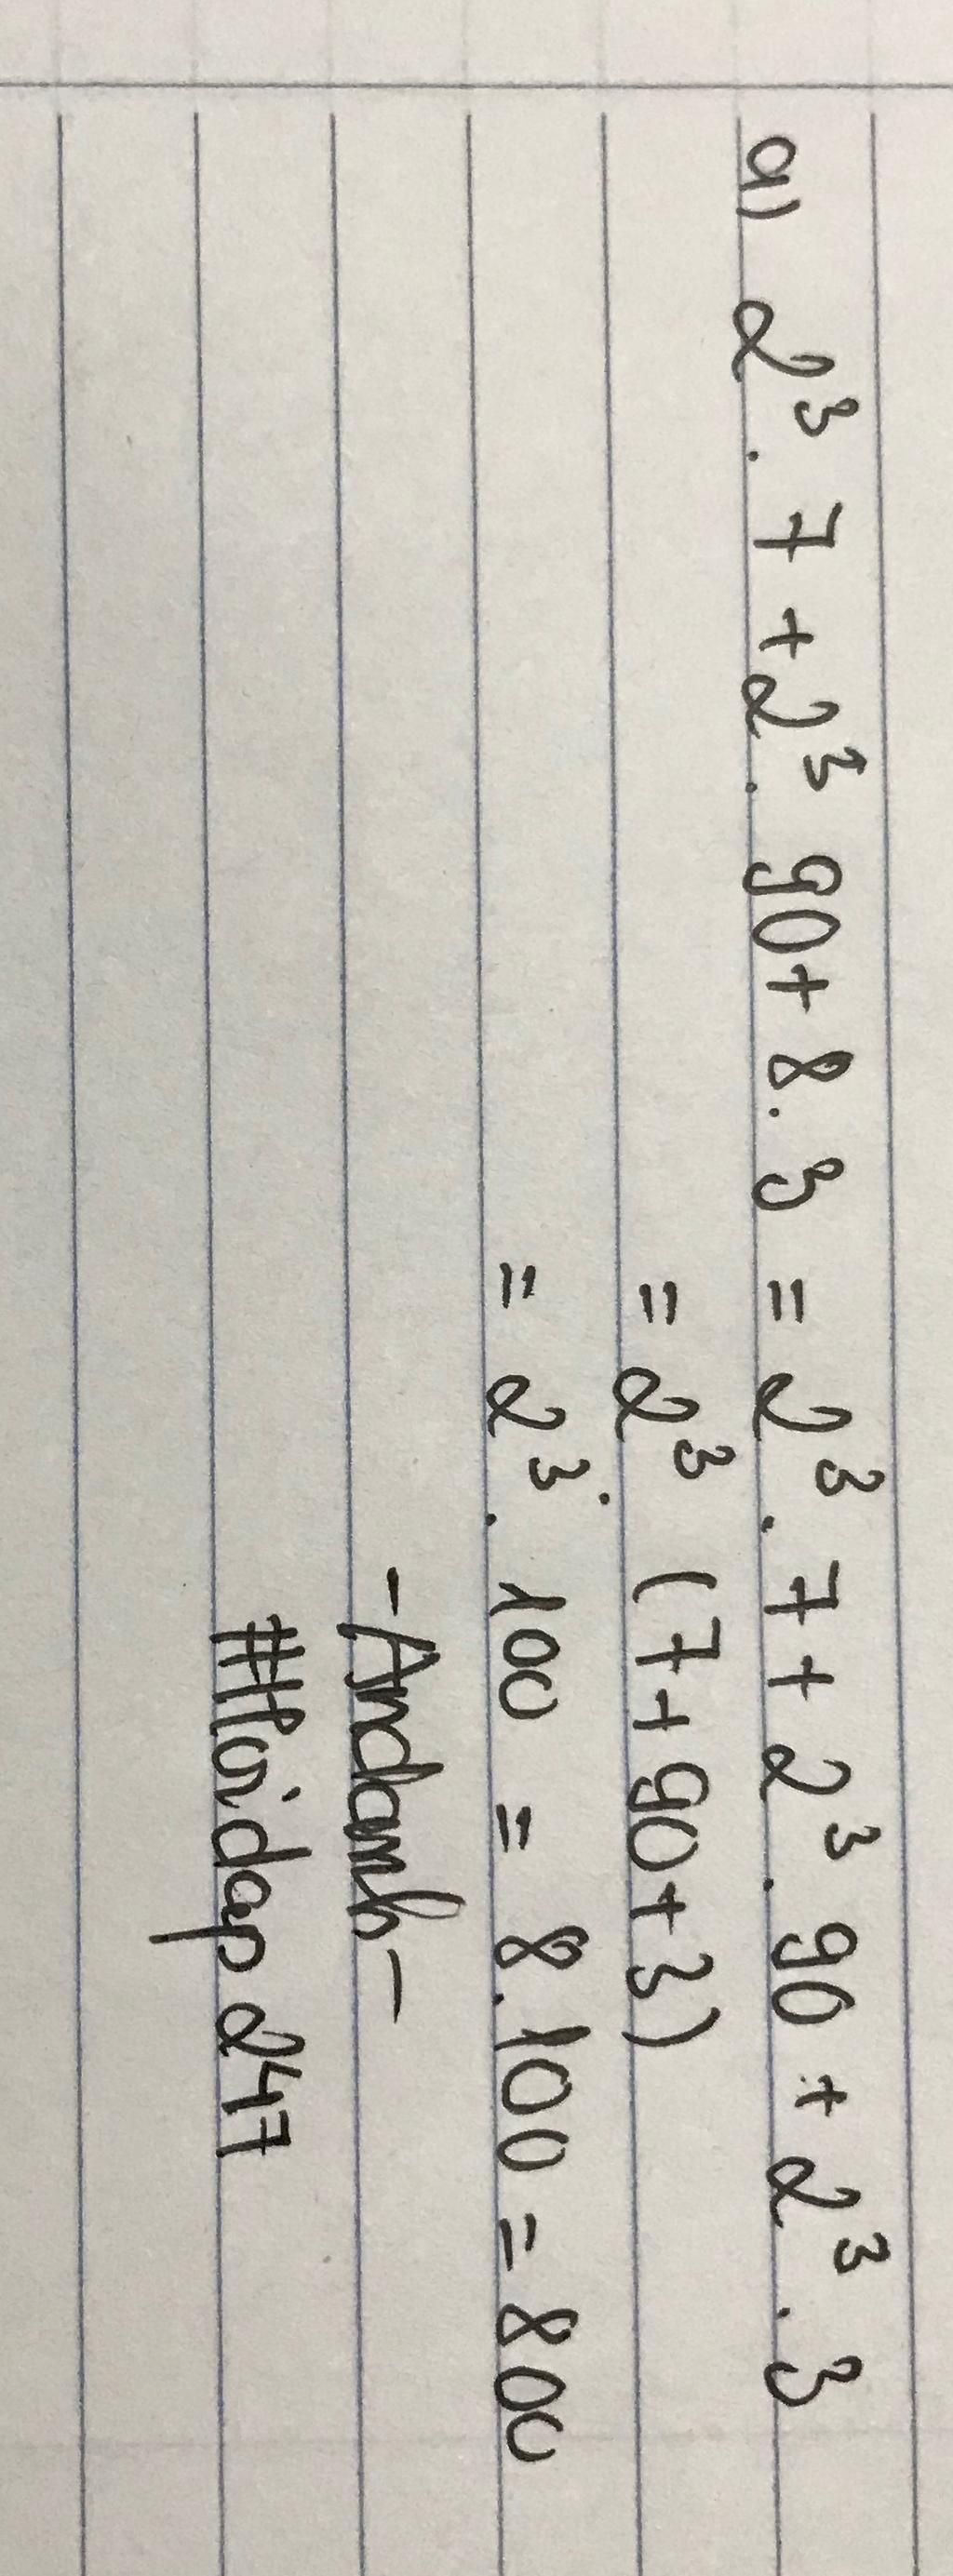 a) 2³. 7 + 2³. 90 + 8. 3 = 2³. 7 + 2³. 90 + 2³. 3
= 2³ (7 + 90 + 3)
= 2³. 100 = 8.100 = 800
-Andanh-
#Hoidap247